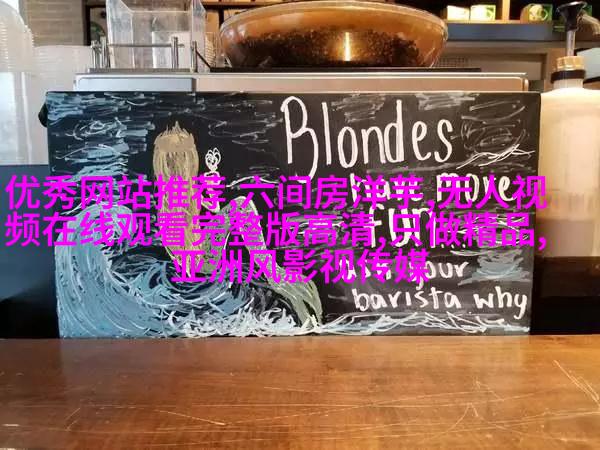 Blondes
more
优秀网站推荐,六间房洋芋,无人视
频在线观看完整版高清,只做精品,
亚洲风影视传媒
your
barista why